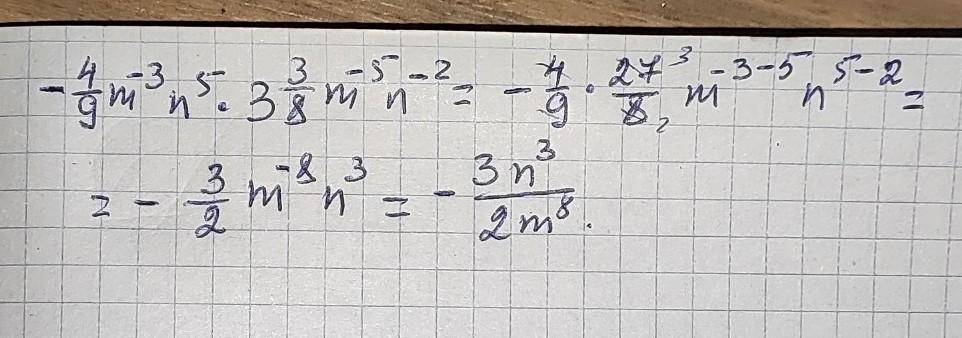 -4/9 m⁻³n⁵ · 3 3/8 m⁻⁵n⁻² = -4/9 · 27³/8₂ m⁻³⁻⁵n⁵⁻² =
= - 3/2 m⁻⁸n³ = - 3n³/2m⁸.